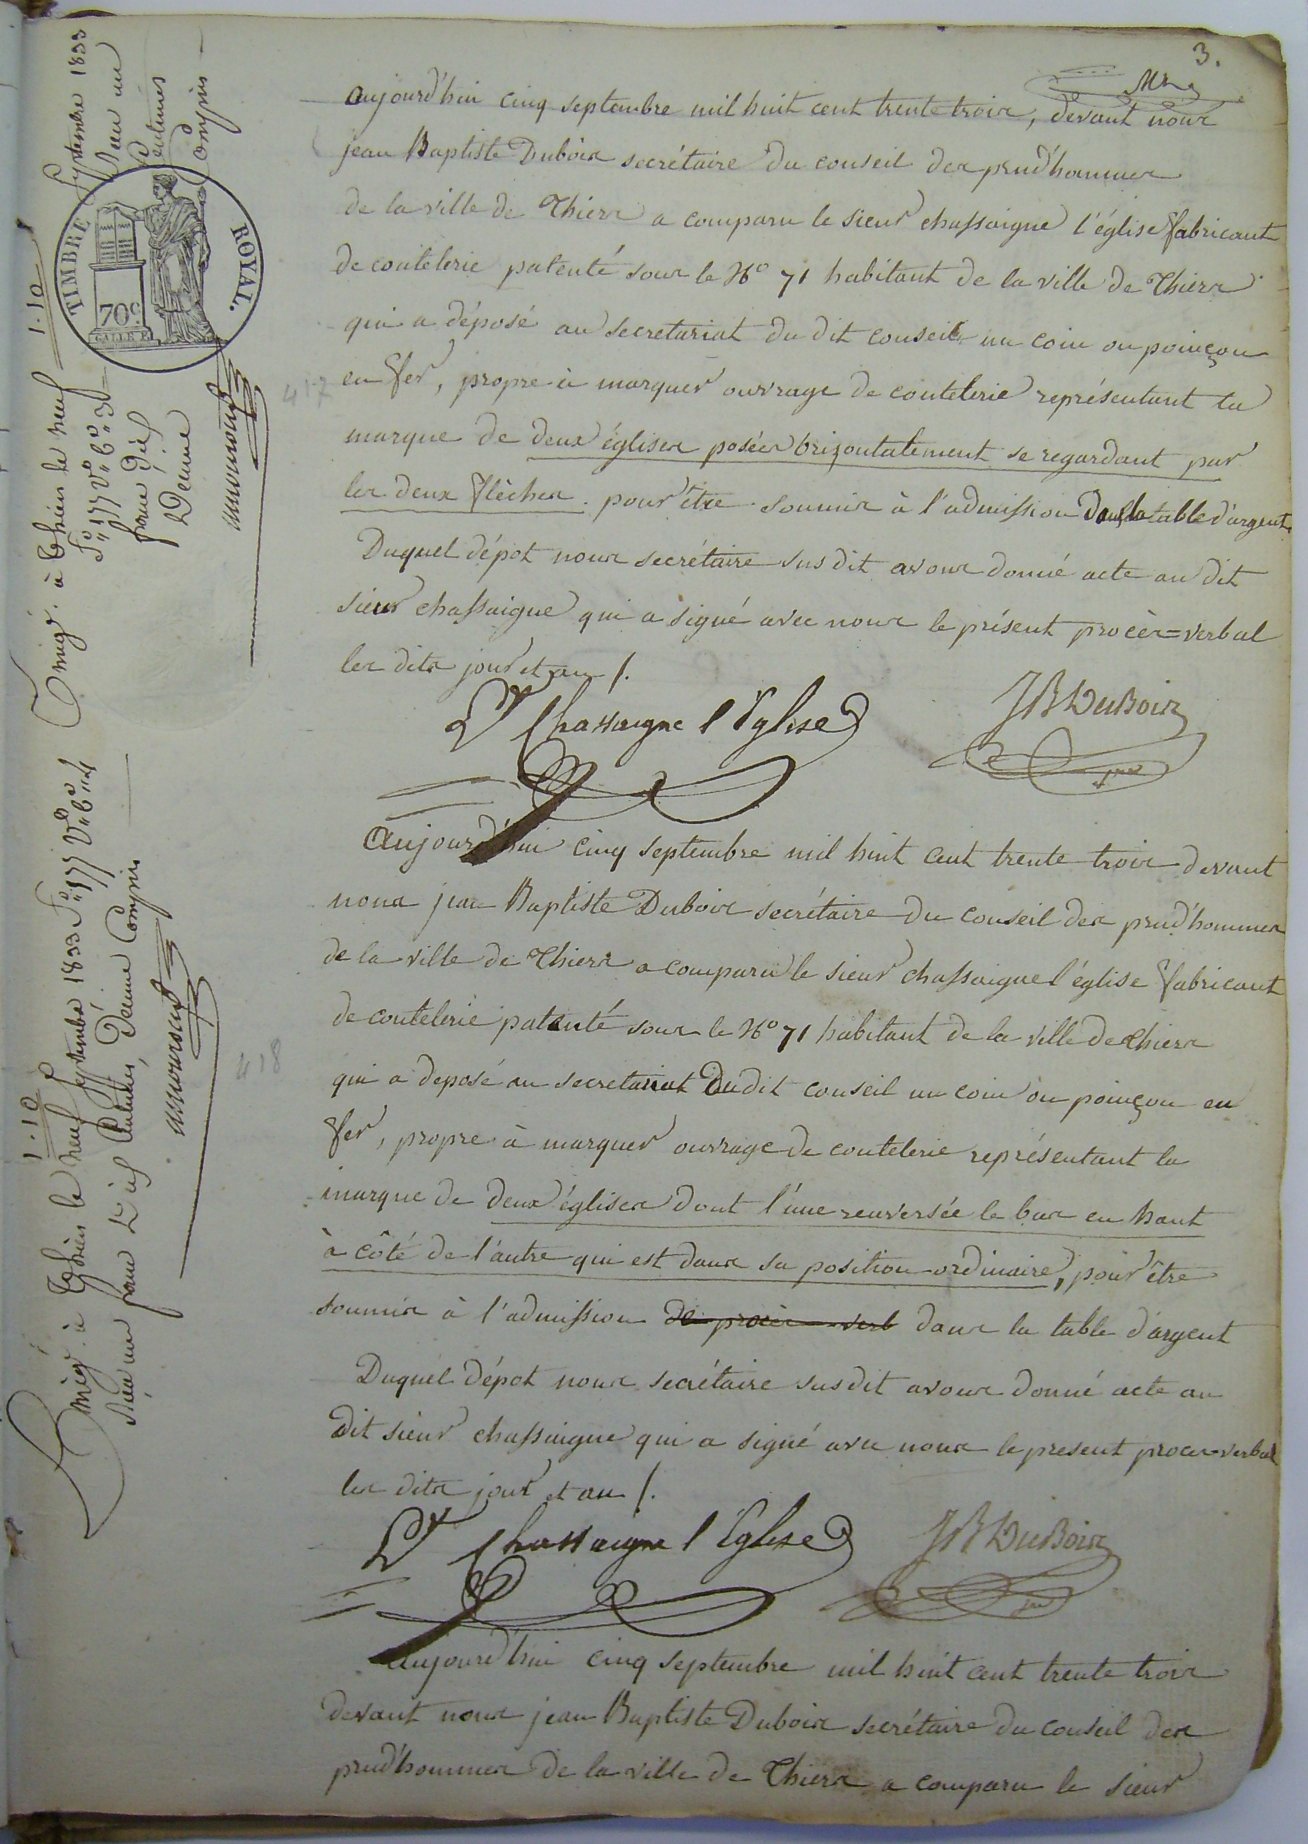 3.
aujourd'hui cinq septembre mil huit cent trente trois, devant nous
jean Baptiste Dubois secrétaire du conseil des prud'hommes
de la ville de Thiers a comparu le sieur chassaigne l'église fabricant
de coutelerie patenté sous le N° 71 habitant de la ville de Thiers
qui a déposé au secretariat du dit conseil un coin ou poinçon
en fer, propre à marquer ouvrage de coutelerie représentant la
marque de deux églises posées orizontalement se regardant par
les deux flèches. pour être soumis à l'admission dans la table d'argent.
Duquel dépot nous secrétaire sus dit avons donné acte au dit
sieur chassaigne qui a signé avec nous le présent procès=verbal
les dits jour et an /.
Chassaigne l'Eglise JB DuBois
aujourd'hui cinq septembre mil huit cent trente trois devant
nous jean Baptiste Dubois secrétaire du conseil des prud'hommes
de la ville de Thiers a comparu le sieur chassaigne l'église fabricant
de coutelerie patenté sous le N° 71 habitant de la ville de Thiers
qui a deposé au secretariat dudit conseil un coin ou poinçon en
fer, propre à marquer ouvrage de coutelerie représentant la
marque de deux églises dont l'une renversée le bas en haut
à côté de l'autre qui est dans sa position ordinaire, pour être
soumis à l'admission de procès verb dans la table d'argent
Duquel dépot nous secrétaire susdit avons donné acte au
dit sieur chassaigne qui a signé avec nous le present procès=verbal
les dits jour et an /.
Chassaigne l'Eglise JB DuBois
aujourd'hui cinq septembre mil huit cent trente trois
devant nous jean Baptiste Dubois secrétaire du conseil des
prud'hommes de la ville de Thiers a comparu le sieur
TIMBRE ROYAL.
70c.
1.10
à Thiers le neuf Septembre 1833
f° 177 V° C° 3
417
1.10
à Thiers le neuf Septembre 1833 f° 177 V° C°
Reçu un franc dix centimes, Decime Compris
418